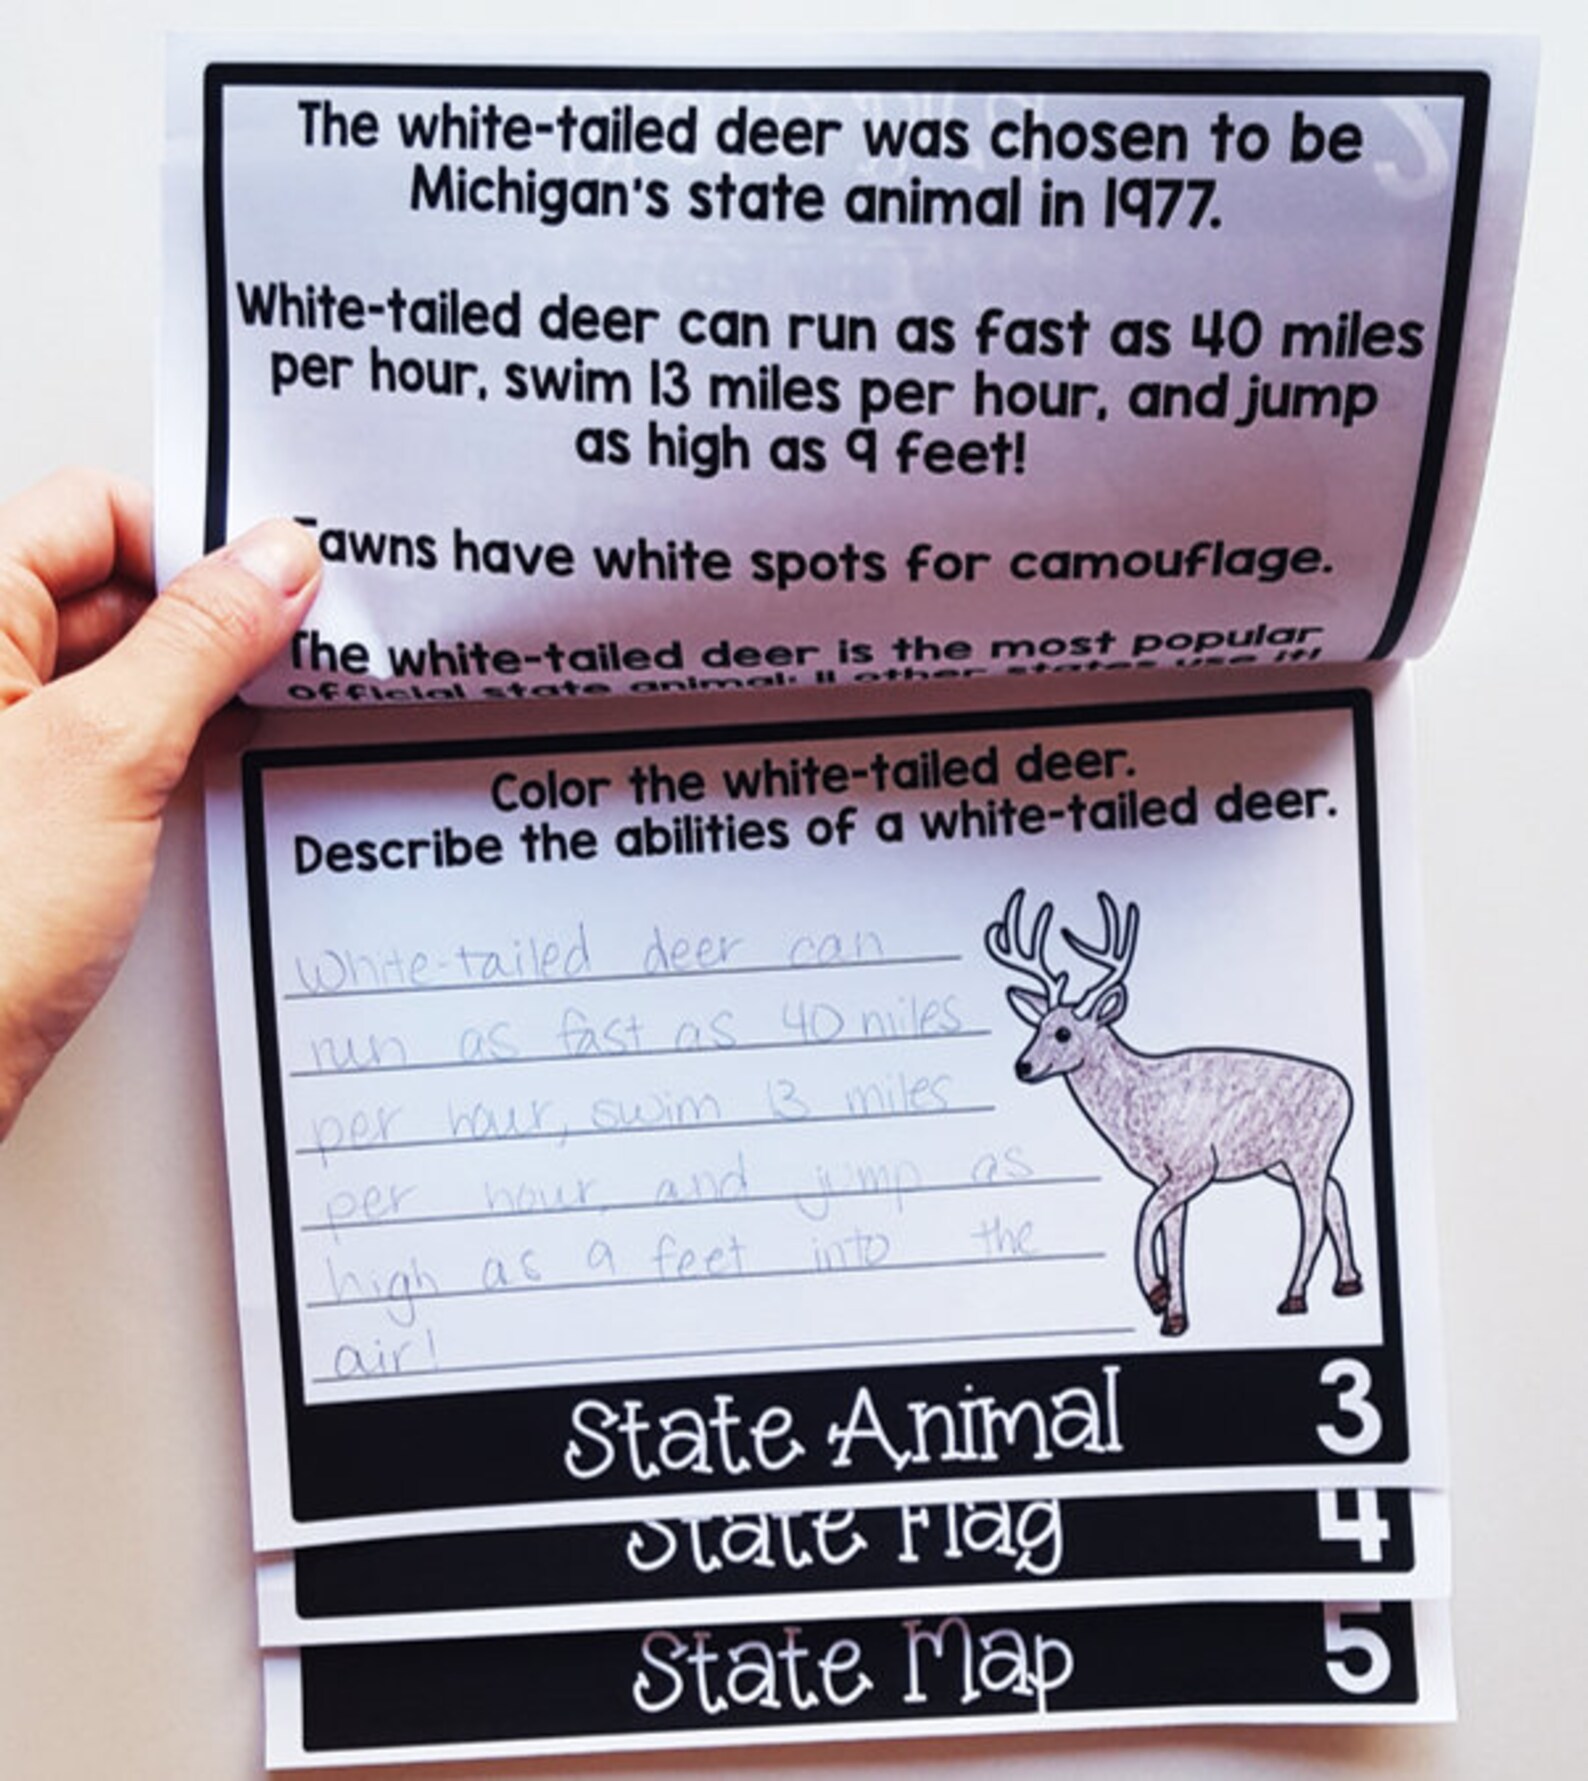 The white-tailed deer was chosen to be
Michigan's state animal in 1977.
White-tailed deer can run as fast as 40 miles
per hour, swim 13 miles per hour, and jump
as high as 9 feet!
Fawns have white spots for camouflage.
The white-tailed deer is the most popular
official state animal; 11 other states use it!
Color the white-tailed deer.
Describe the abilities of a white-tailed deer.
White-tailed deer can
run as fast as 40 miles
per hour, swim 13 miles
per hour, and jump as
high as 9 feet into the
air!
State Animal 3
State Flag 4
State Map 5